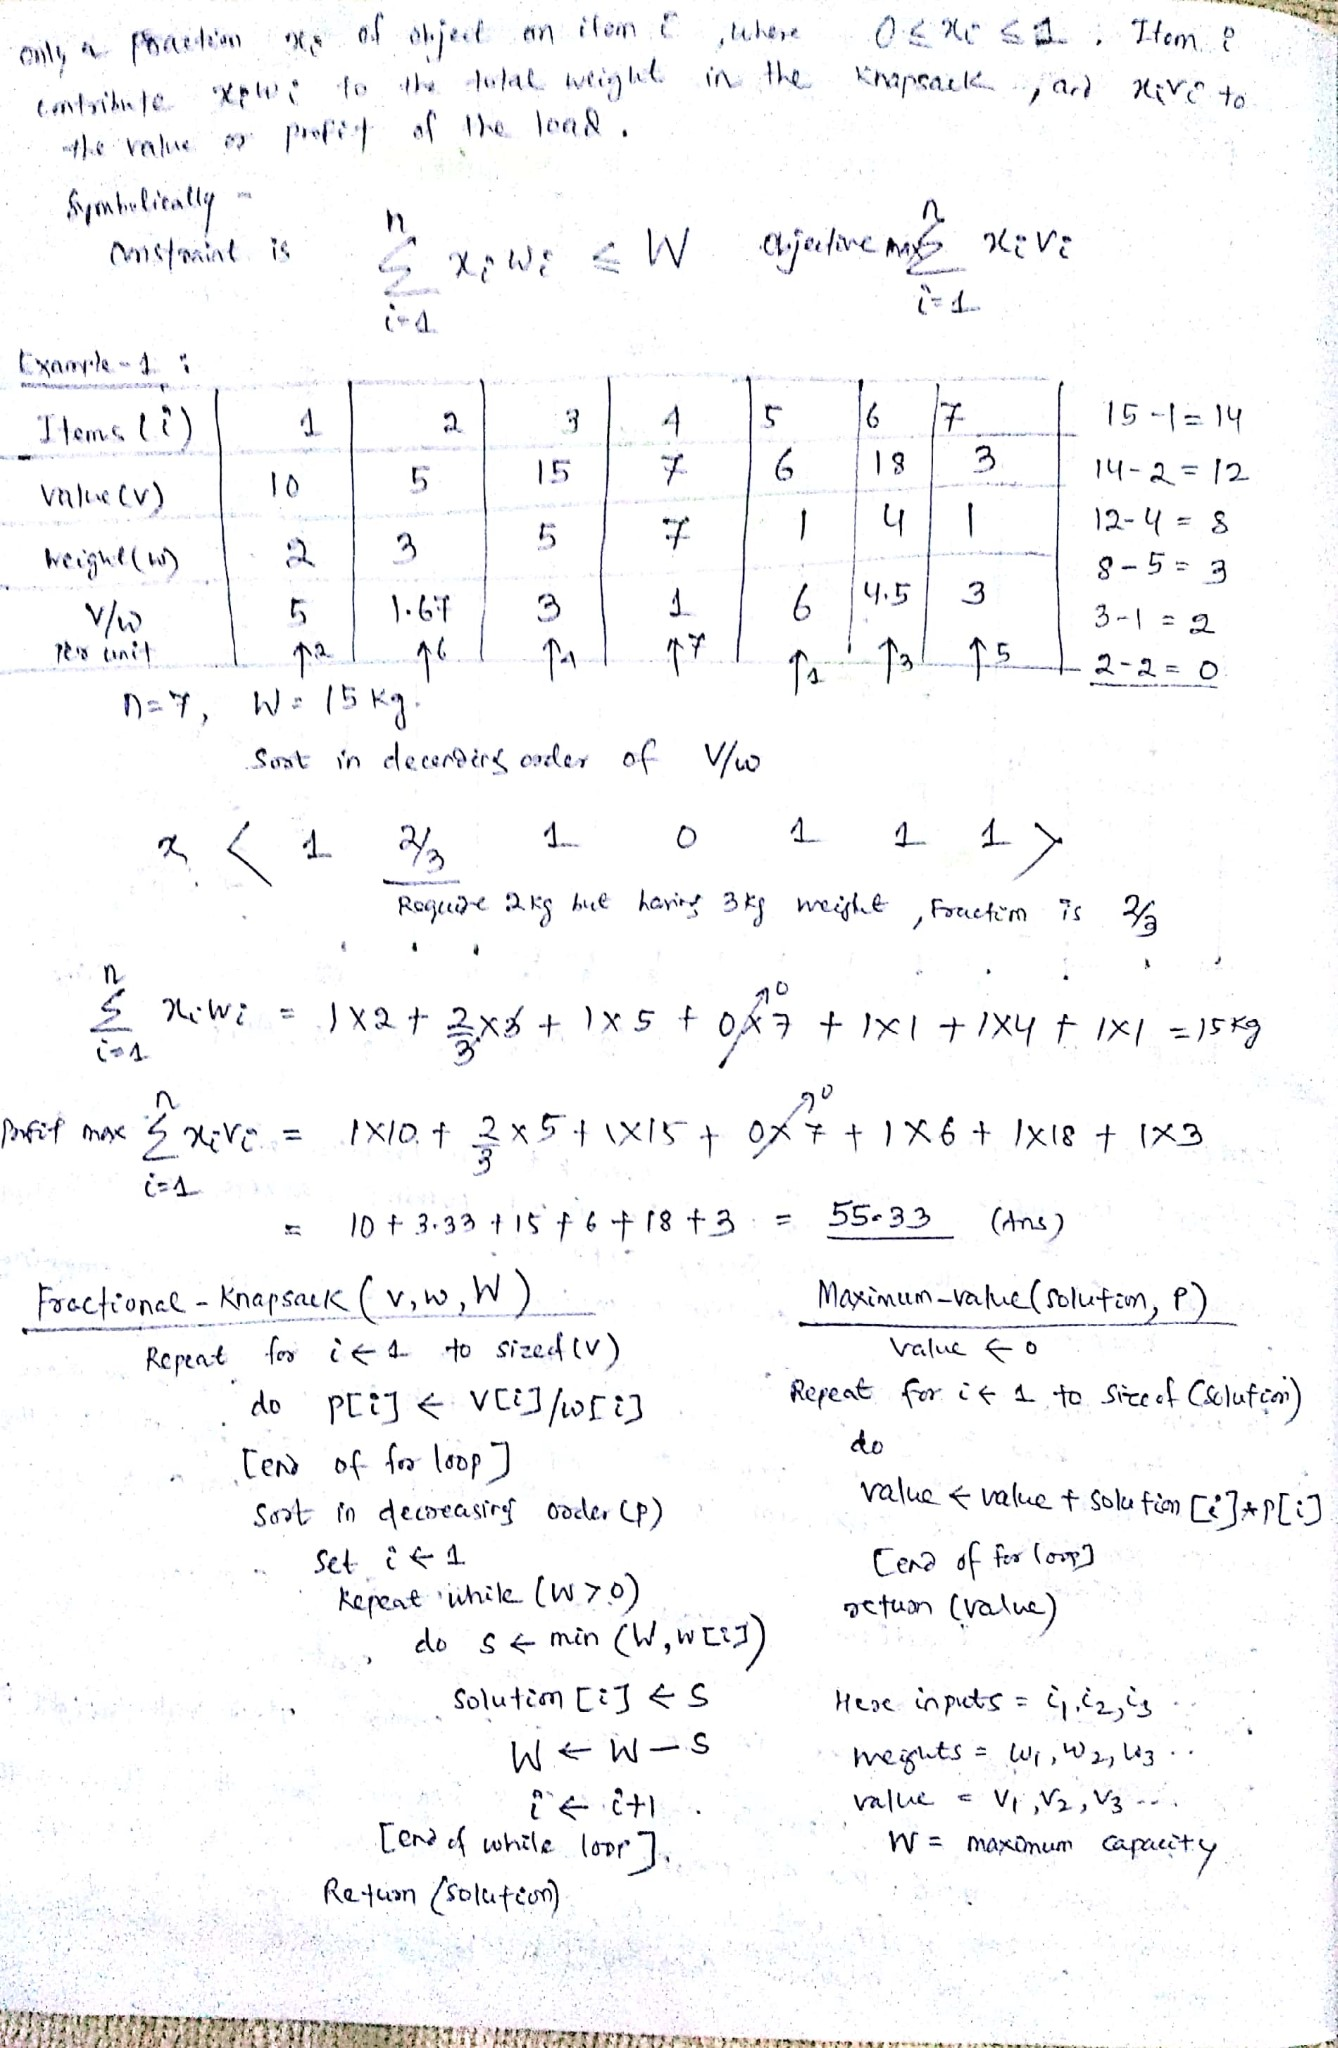 only a fraction xi of object an item i, where 0 ≤ xi ≤ 1. Item i
contribute xiwi to the total weight in the knapsack, and xivi to
the value or profit of the load.
Symbolically -
constraint is n Σ i=1 xiwi ≤ W objective max n Σ i=1 xivi
Example-1:
Items (i) 1 2 3 4 5 6 7 15-1=14
value(v) 10 5 15 7 6 18 3 14-2=12
weight(w) 2 3 5 7 1 4 1 12-4=8
8-5=3
v/w 5 1.67 3 1 6 4.5 3 3-1=2
per unit ↑2 ↑6 ↑4 ↑7 ↑1 ↑3 ↑5 2-2=0
n=7, W=15 kg.
Sort in decending order of v/w
x < 1 2/3 1 0 1 1 1 >
Require 2kg but having 3kg weight, Fraction is 2/3
n Σ i=1 xiwi = 1x2 + 2/3x3 + 1x5 + 0x7↗0 + 1x1 + 1x4 + 1x1 = 15kg
Profit max n Σ i=1 xivi = 1x10 + 2/3 x 5 + 1x15 + 0x7↗0 + 1x6 + 1x18 + 1x3
= 10 + 3.33 + 15 + 6 + 18 + 3 = 55.33 (Ans)
Fractional - Knapsack (v, w, W)
Repeat for i ← 1 to sizeof(v)
do p[i] ← v[i]/w[i]
[end of for loop]
Sort in decreasing order (p)
Set i ← 1
Repeat while (W>0)
do s ← min (W, w[i])
Solution [i] ← s
W ← W - s
i ← i+1
[end of while loop].
Return (solution)
Maximum-value(solution, P)
value ← 0
Repeat for i ← 1 to size of (solution)
do
value ← value + solution [i]*p[i]
[end of for loop]
return (value)
Here inputs = i1, i2, i3 ..
weights = w1, w2, w3 ..
value = v1, v2, v3 ...
W = maximum capacity